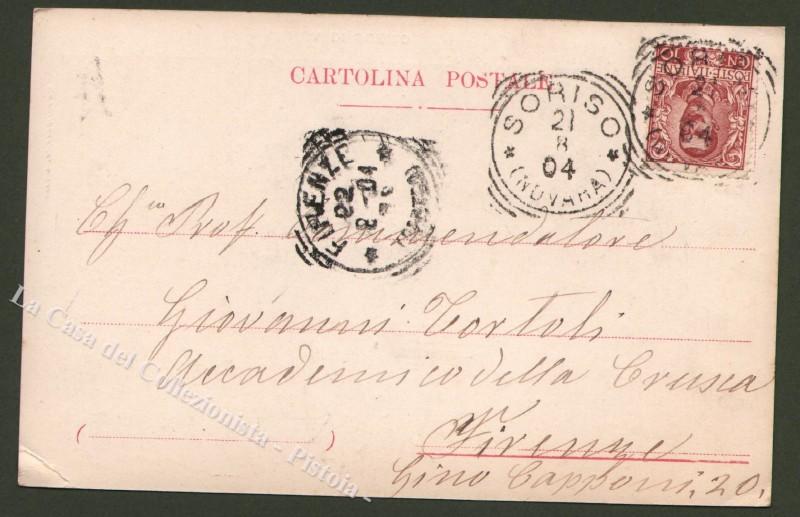 CARTOLINA POSTALE
SORISO
21
8
04
(NOVARA)
FIRENZE
22
8-04
Ch mo Prof. Commendatore
Giovanni Tortoli
Accademico della Crusca
Firenze
Gino Capponi, 20.
La Casa del Collezionista - Pistoia -